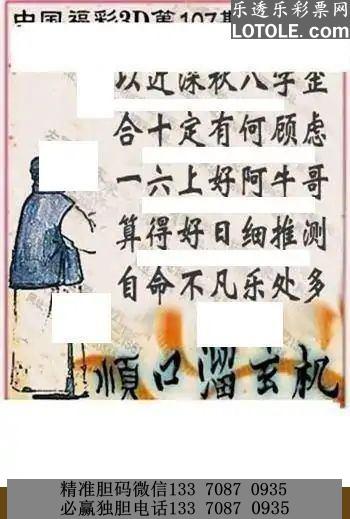 乐透乐彩票网
LOTOLE.COM
中国福彩3D第107期
以近深秋八字歪
合十定有何顾虑
一六上好阿牛哥
算得好日细推测
自命不凡乐处多
順口溜玄机
精准胆码微信133 7087 0935
必赢独胆电话133 7087 0935